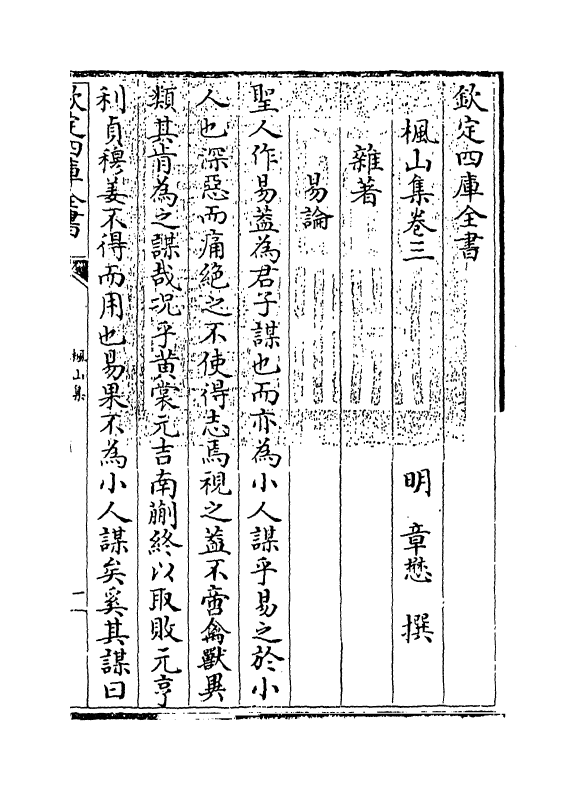 欽定四庫全書
楓山集卷三
明 章懋 撰
雜著
易論
聖人作易蓋為君子謀也而亦為小人謀乎易之於小
人也深惡而痛絕之不使得志焉視之蓋不啻禽獸異
類其肯為之謀哉况乎黄裳元吉南蒯終以取敗元亨
利貞穆姜不得而用也易果不為小人謀矣奚其謀曰
欽定四庫全書
楓山集
一